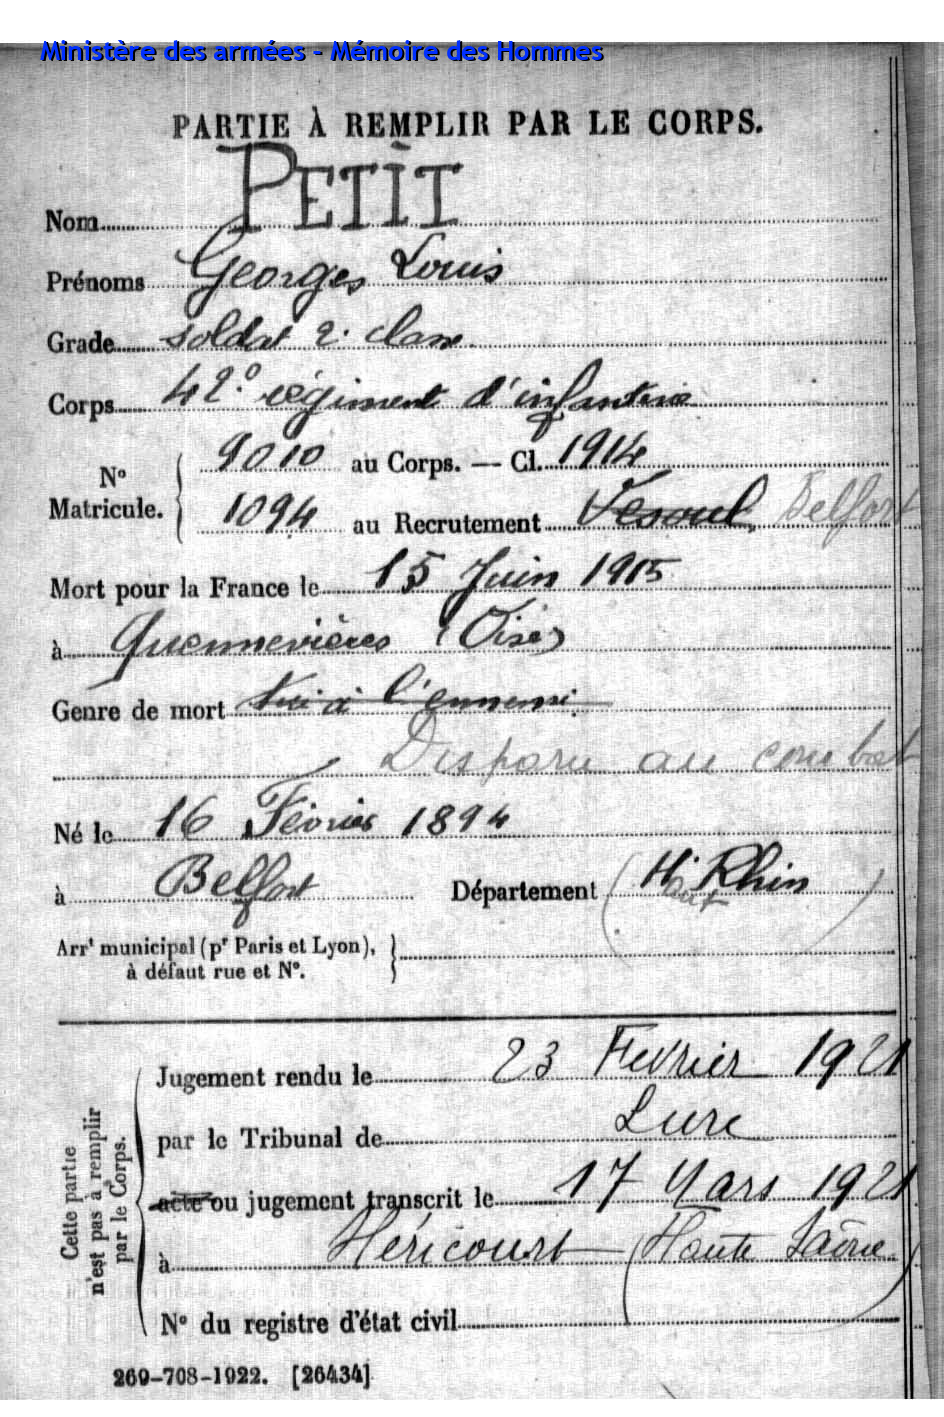 Ministère des armées - Mémoire des Hommes
PARTIE À REMPLIR PAR LE CORPS.
Nom PETIT
Prénoms Georges Louis
Grade soldat 2e classe
Corps 42e régiment d'infanterie
N° Matricule. { 9010 au Corps. — Cl. 1914
1094 au Recrutement Vesoul Belfort
Mort pour la France le 15 Juin 1915
à Quennevières (Oise)
Genre de mort tué à l'ennemi
Disparu au combat
Né le 16 Février 1894
à Belfort Département (Ht Rhin)
aut
Arrt municipal (pr Paris et Lyon), }
à défaut rue et N°.
Cette partie n'est pas à remplir par le Corps.
Jugement rendu le 23 Fevrier 1921
par le Tribunal de Lure
acte ou jugement transcrit le 17 Mars 1921
à Héricourt (Haute Saône)
N° du registre d'état civil
269-708-1922. [26434]